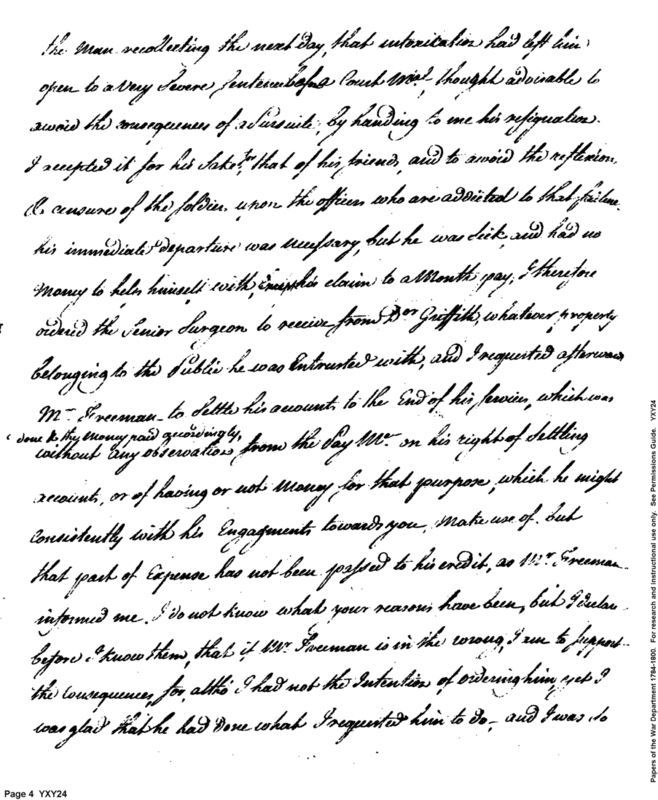 the Man recollecting the next day, that intoxication had left him
open to a very Severe Sentence before a Court Mial, thought advisable to
avoid the consequences of a Pursuite, by handing to me his resignation.
I accepted it for his Sake, for that of his friends, and to avoid the reflexion
& censure of the Soldier upon the officers who are addicted to that failure.
his immediate departure was necessary, but he was Sick, and had no
Money to help himself with, Except his claim to a Month pay, I therefore
ordered the Senior Surgeon to receive from Dor Griffith, whatever property
belonging to the Public he was Entrusted with, and I requested afterwards
Mr Freeman to Settle his accounts to the End of his Services, which was
done & thy Money paid accordingly,
without any observation from the Pay Mr on his right of Settling
accounts, or of having or not Money for that purpose, which he might
consistently with his Engagments towards you, Make use of. but
that part of Expense has not been passed to his credit, as Mr Freeman
informed me. I do not know what your reasons have been, but I declare
before I know them, that if Mr Freeman is in the wrong, I am to Support
the Consequences, for, altho I had not the Intention of ordering him, yet I
was glad that he had Done what I requested him to do – and I was So
Page 4 YXY24
Papers of the War Department 1784-1800. For research and instructional use only. See Permissions Guide. YXY24